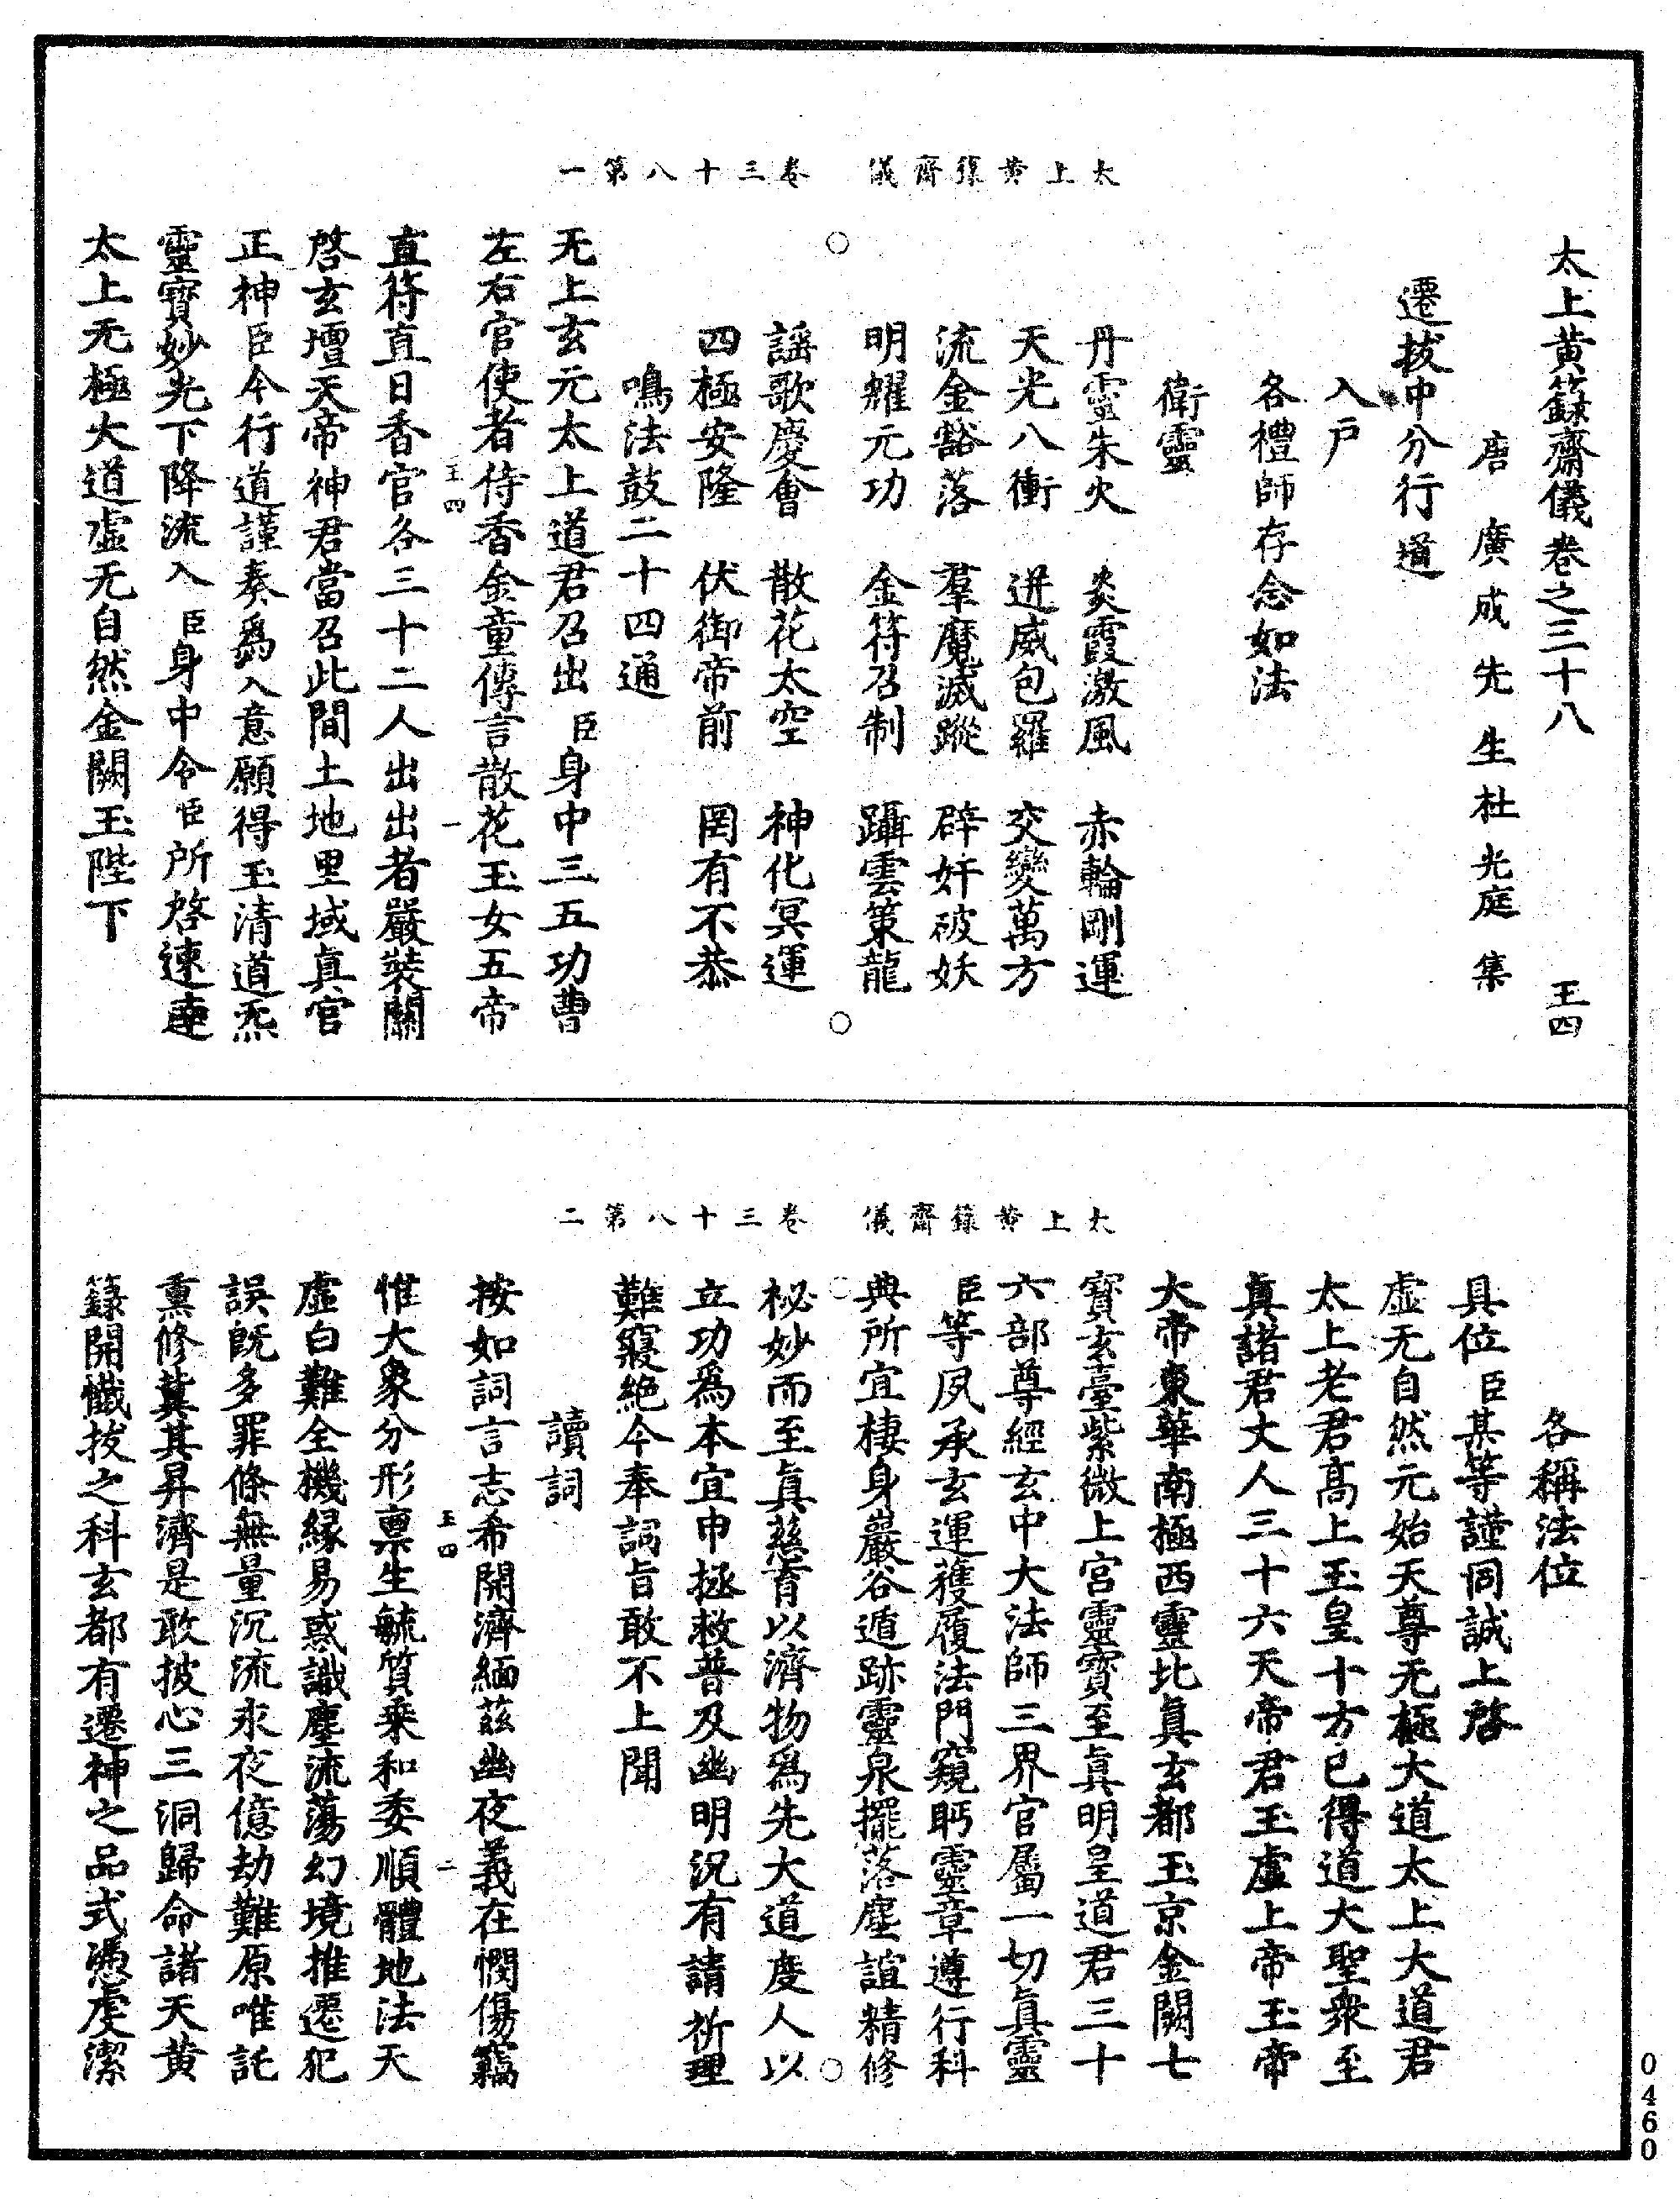 太上黃籙齋儀　卷三十八第一
太上黃籙齋儀卷之三十八　王四
唐廣成先生杜光庭集
遷拔中分行道
入戶
各禮師存念如法
衛靈
丹靈朱火　炎霞激風　赤輪剛運
天光八衝　迸威包羅　交變萬方
流金豁落　羣魔滅蹤　辟奸破妖
明耀元功　金符召制　躡雲策龍
謡歌慶會　散花太空　神化冥運
四極安隆　伏御帝前　罔有不恭
鳴法鼓二十四通
无上玄元太上道君召出臣身中三五功曹
左右官使者侍香金童傳言散花玉女五帝
王四　一
直符直日香官各三十二人出出者嚴裝關
啓玄壇天帝神君當召此間土地里域真官
正神臣今行道謹奏爲入意願得玉清道炁
靈寶妙光下降流入臣身中令臣所啓速達
太上无極大道虛无自然金闕玉陛下
太上黃籙齋儀　卷三十八第二
各稱法位
具位臣某等謹同誠上啓
虛无自然元始天尊无極大道太上大道君
太上老君高上玉皇十方已得道大聖衆至
真諸君丈人三十六天帝君玉虛上帝玉帝
大帝東華南極西靈北真玄都玉京金闕七
寶玄臺紫微上宮靈寶至真明皇道君三十
六部尊經玄中大法師三界官屬一切真靈
臣等夙承玄運獲履法門窺眄靈章遵行科
典所宜棲身巖谷遁跡靈泉擺落塵諠精修
祕妙而至真慈育以濟物爲先大道度人以
立功爲本宜申拯救普及幽明況有請祈理
難寢絕今奉詞旨敢不上聞
讀詞
按如詞言志希開濟緬茲幽夜義在憫傷竊
王四　二
惟大象分形禀生毓質乘和委順體地法天
虛白難全機緣易惑識塵流蕩幻境推遷犯
誤既多罪條無量沉流永夜億劫難原唯託
熏修冀其昇濟是敢披心三洞歸命諸天黃
籙開懺拔之科玄都有遷神之品式憑虔潔
0460